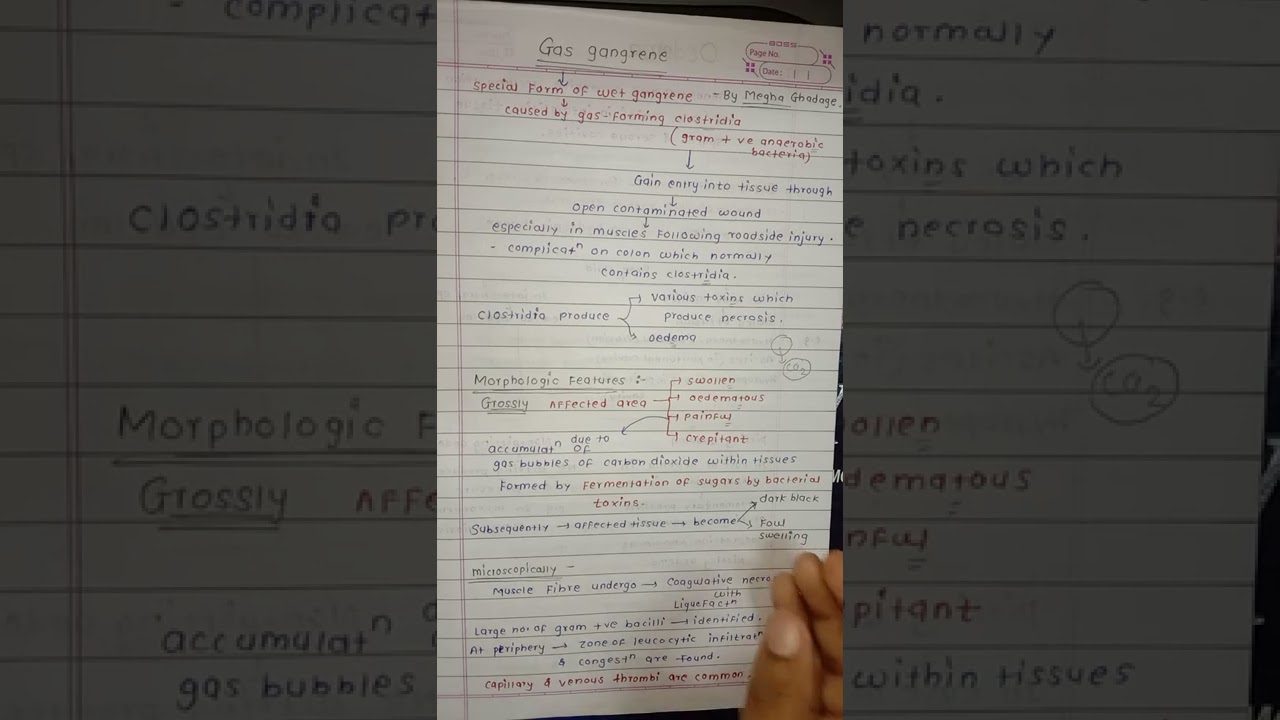 Gas gangrene
BOSS
Page No.
Date:
special Form of wet gangrene - By Megha Ghadage.
caused by gas-Forming clostridia
(gram + ve anaerobic
bacteria)
Gain entry into tissue through
open contaminated wound
especially in muscles Following roadside injury.
- complicatⁿ on colon which normally
contains clostridia.
various toxins which
clostridia produce produce necrosis.
oedema
CO2
Morphologic Features :-
swollen
Grossly Affected area oedematous
painful
crepitant
accumulatⁿ due to
of
gas bubbles of carbon dioxide within tissues
Formed by Fermentation of sugars by bacterial
toxins.
dark black
Subsequently → affected tissue → become Foul
swelling
microscopically -
Muscle Fibre undergo → Coagulative necro
with
LiqueFactⁿ
Large no. of gram +ve bacilli → identified.
At periphery → zone of leucocytic infiltratⁿ
& congestⁿ are Found.
capillary & venous thrombi are common.